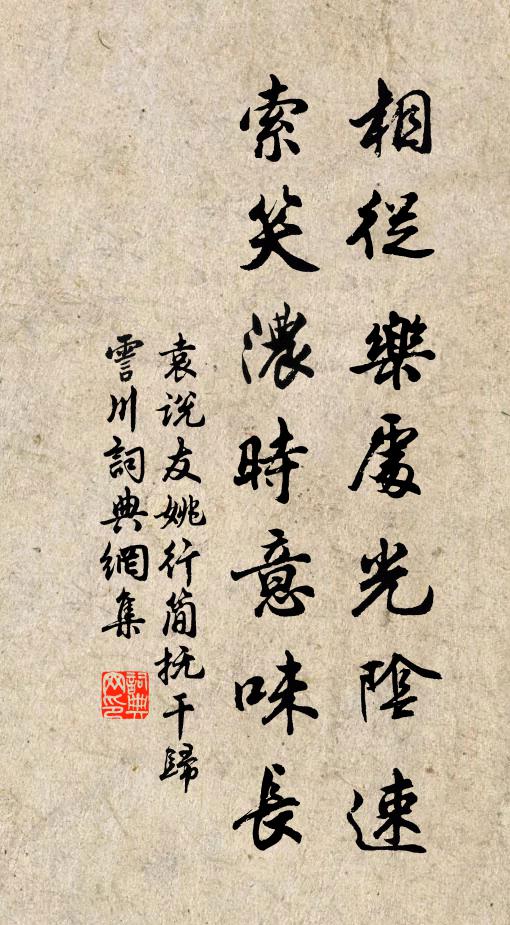 相從樂處光陰速
索笑濃時意味長
袁说友姚行简抚干歸
霅川詞典網集
詞典网印